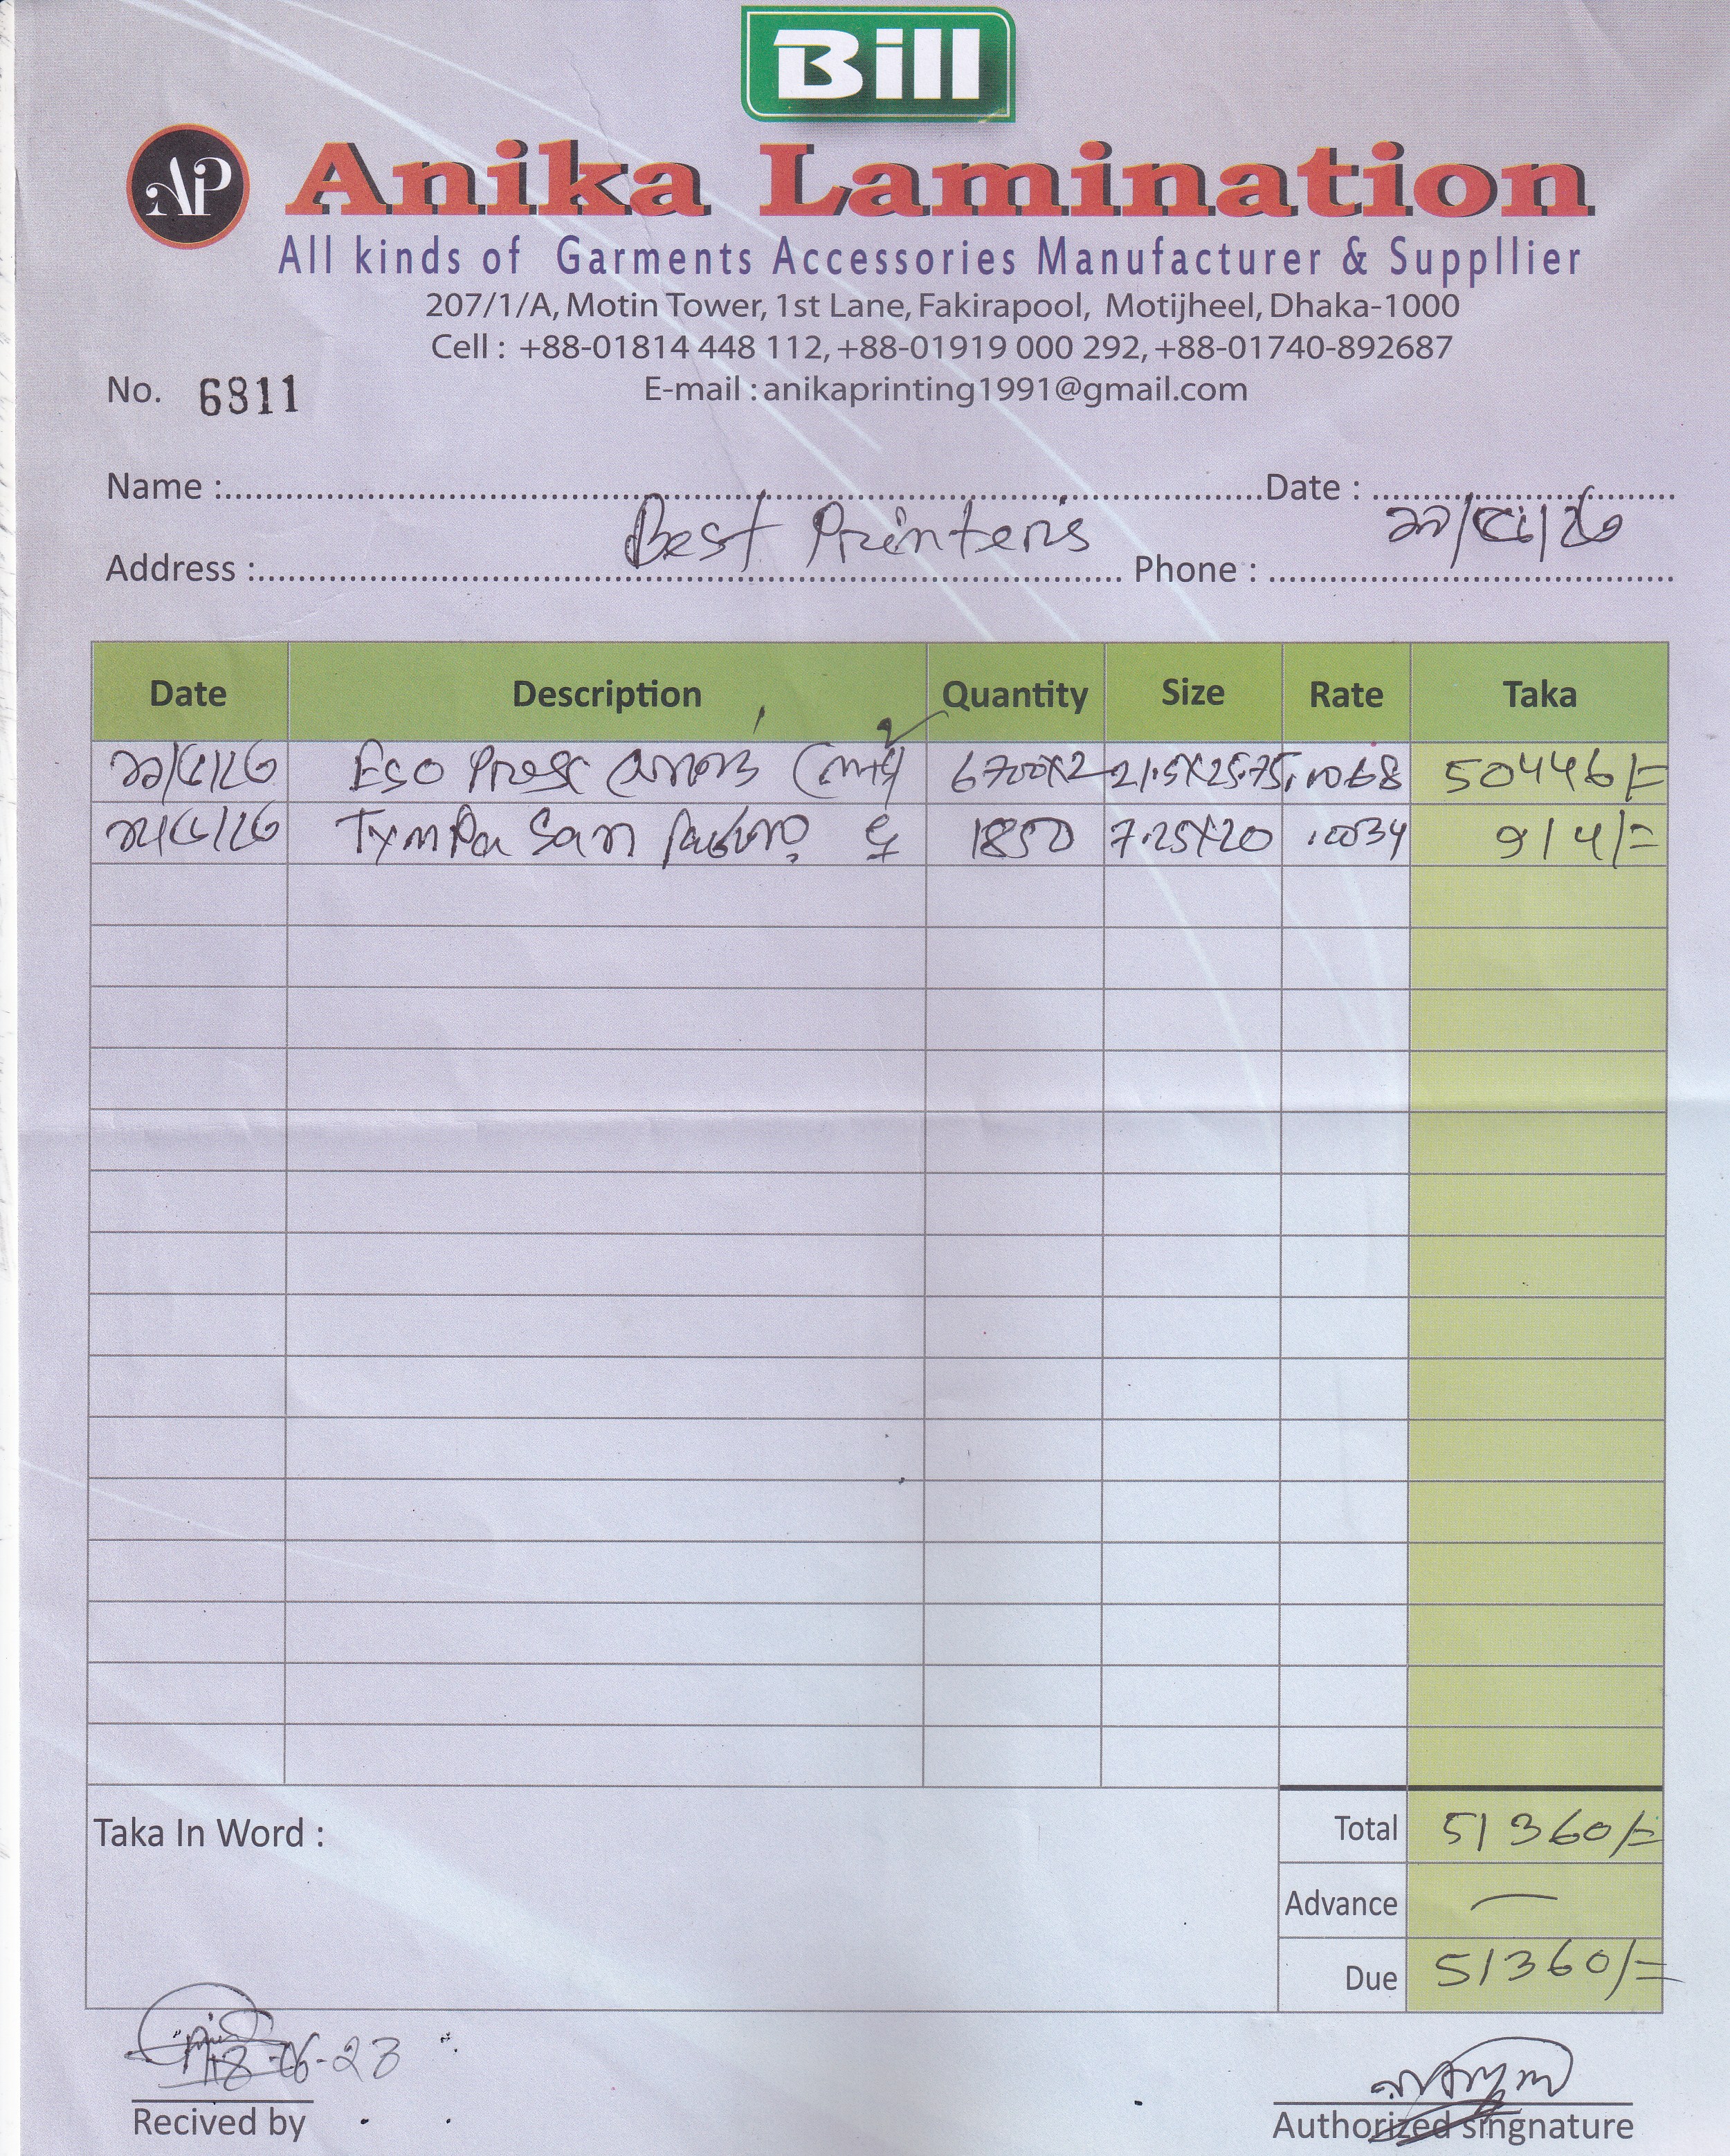 Bill
AP Anika Lamination
All kinds of Garments Accessories Manufacturer & Suppllier
207/1/A, Motin Tower, 1st Lane, Fakirapool, Motijheel, Dhaka-1000
Cell : +88-01814 448 112, +88-01919 000 292, +88-01740-892687
No. 6811 E-mail : anikaprinting1991@gmail.com
Name : Date :
Best Printers
Address : Phone :
Date Description Quantity Size Rate Taka
Eso 6700X2 21.5X25.75 50446/=
1850 7.25X20 .0034 914/=
Taka In Word :
Total 51360/=
Advance —
Due 51360/=
18-06-23
Recived by
Authorized singnature